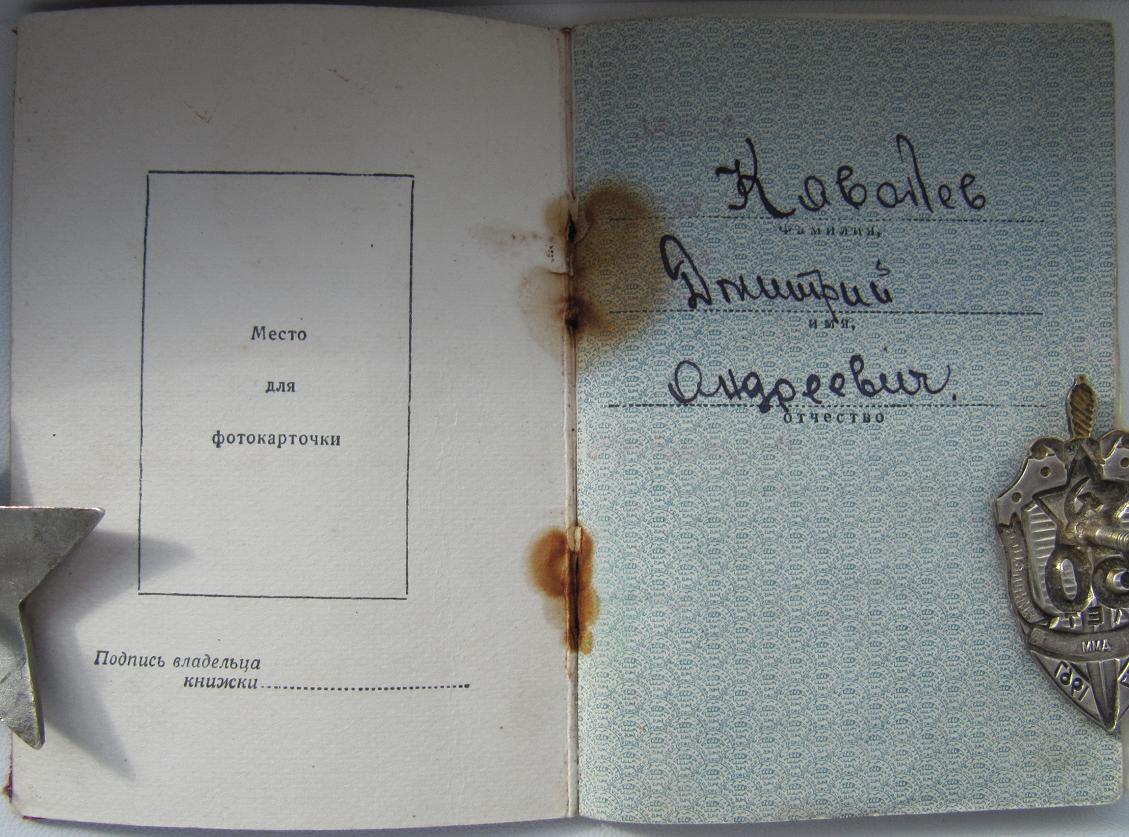 Место
для
фотокарточки
Подпись владельца
книжки
Кавалев
фамилия,
Дмитрий
имя,
Андреевич.
отчество